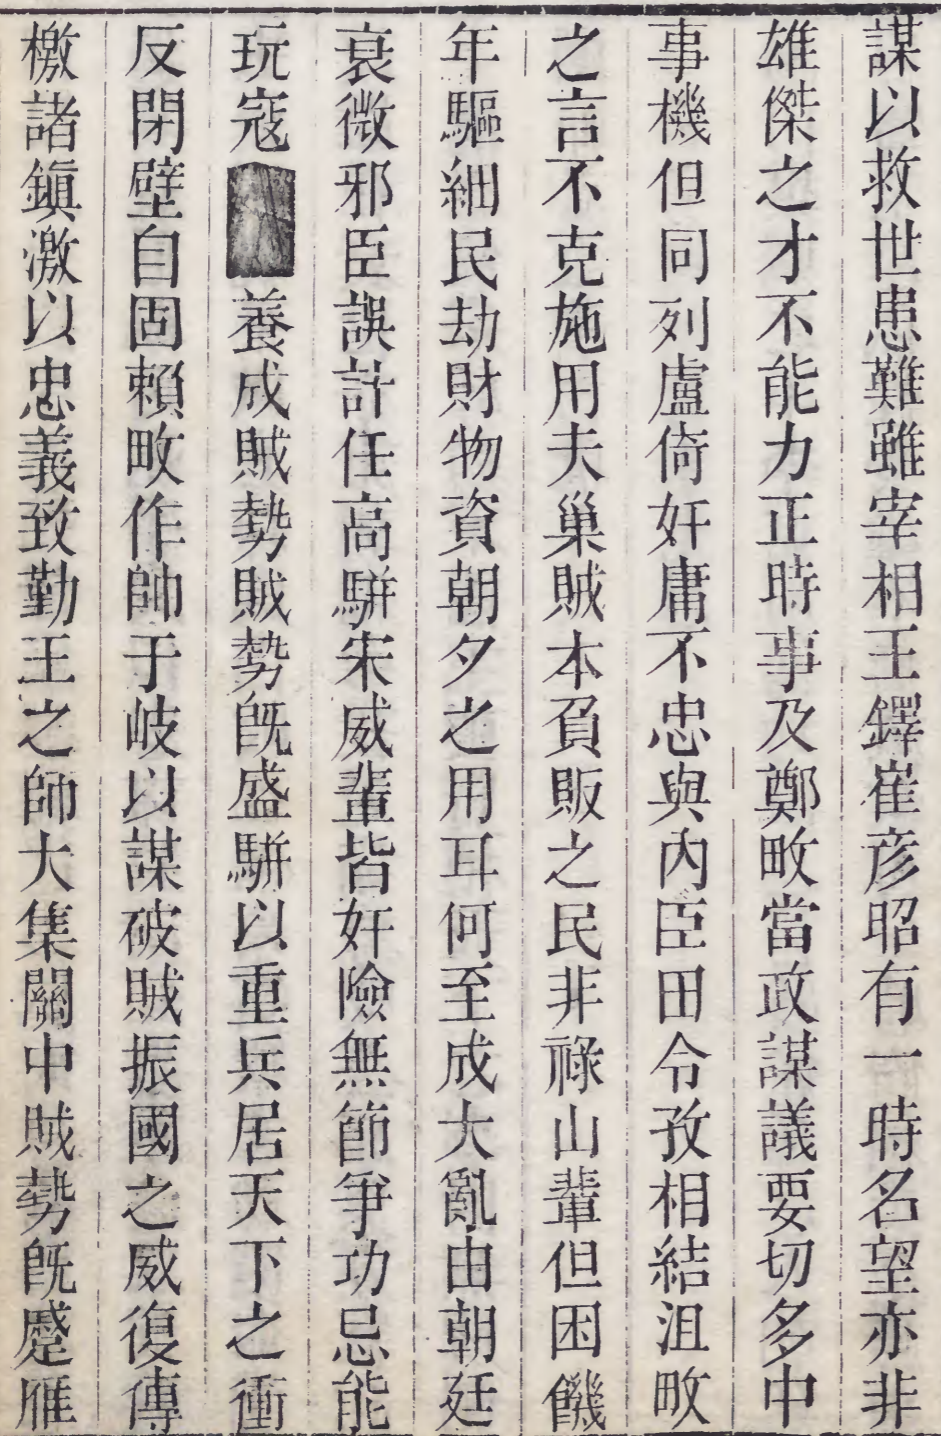 謀以救世患難雖宰相王鐸崔彥昭有一時名望亦非
雄傑之才不能力正時事及鄭畋當政謀議要切多中
事機但同列盧倚奸庸不忠與內臣田令孜相結沮畋
之言不克施用夫巢賊本負販之民非祿山輩但因饑
年驅細民劫財物資朝夕之用耳何至成大亂由朝廷
衰微邪臣誤計任高駢宋威輩皆奸險無節爭功忌能
玩寇養成賊勢賊勢旣盛駢以重兵居天下之衝
反閉壁自固賴畋作帥于岐以謀破賊振國之威復傳
檄諸鎮激以忠義致勤王之師大集關中賊勢旣蹙雁